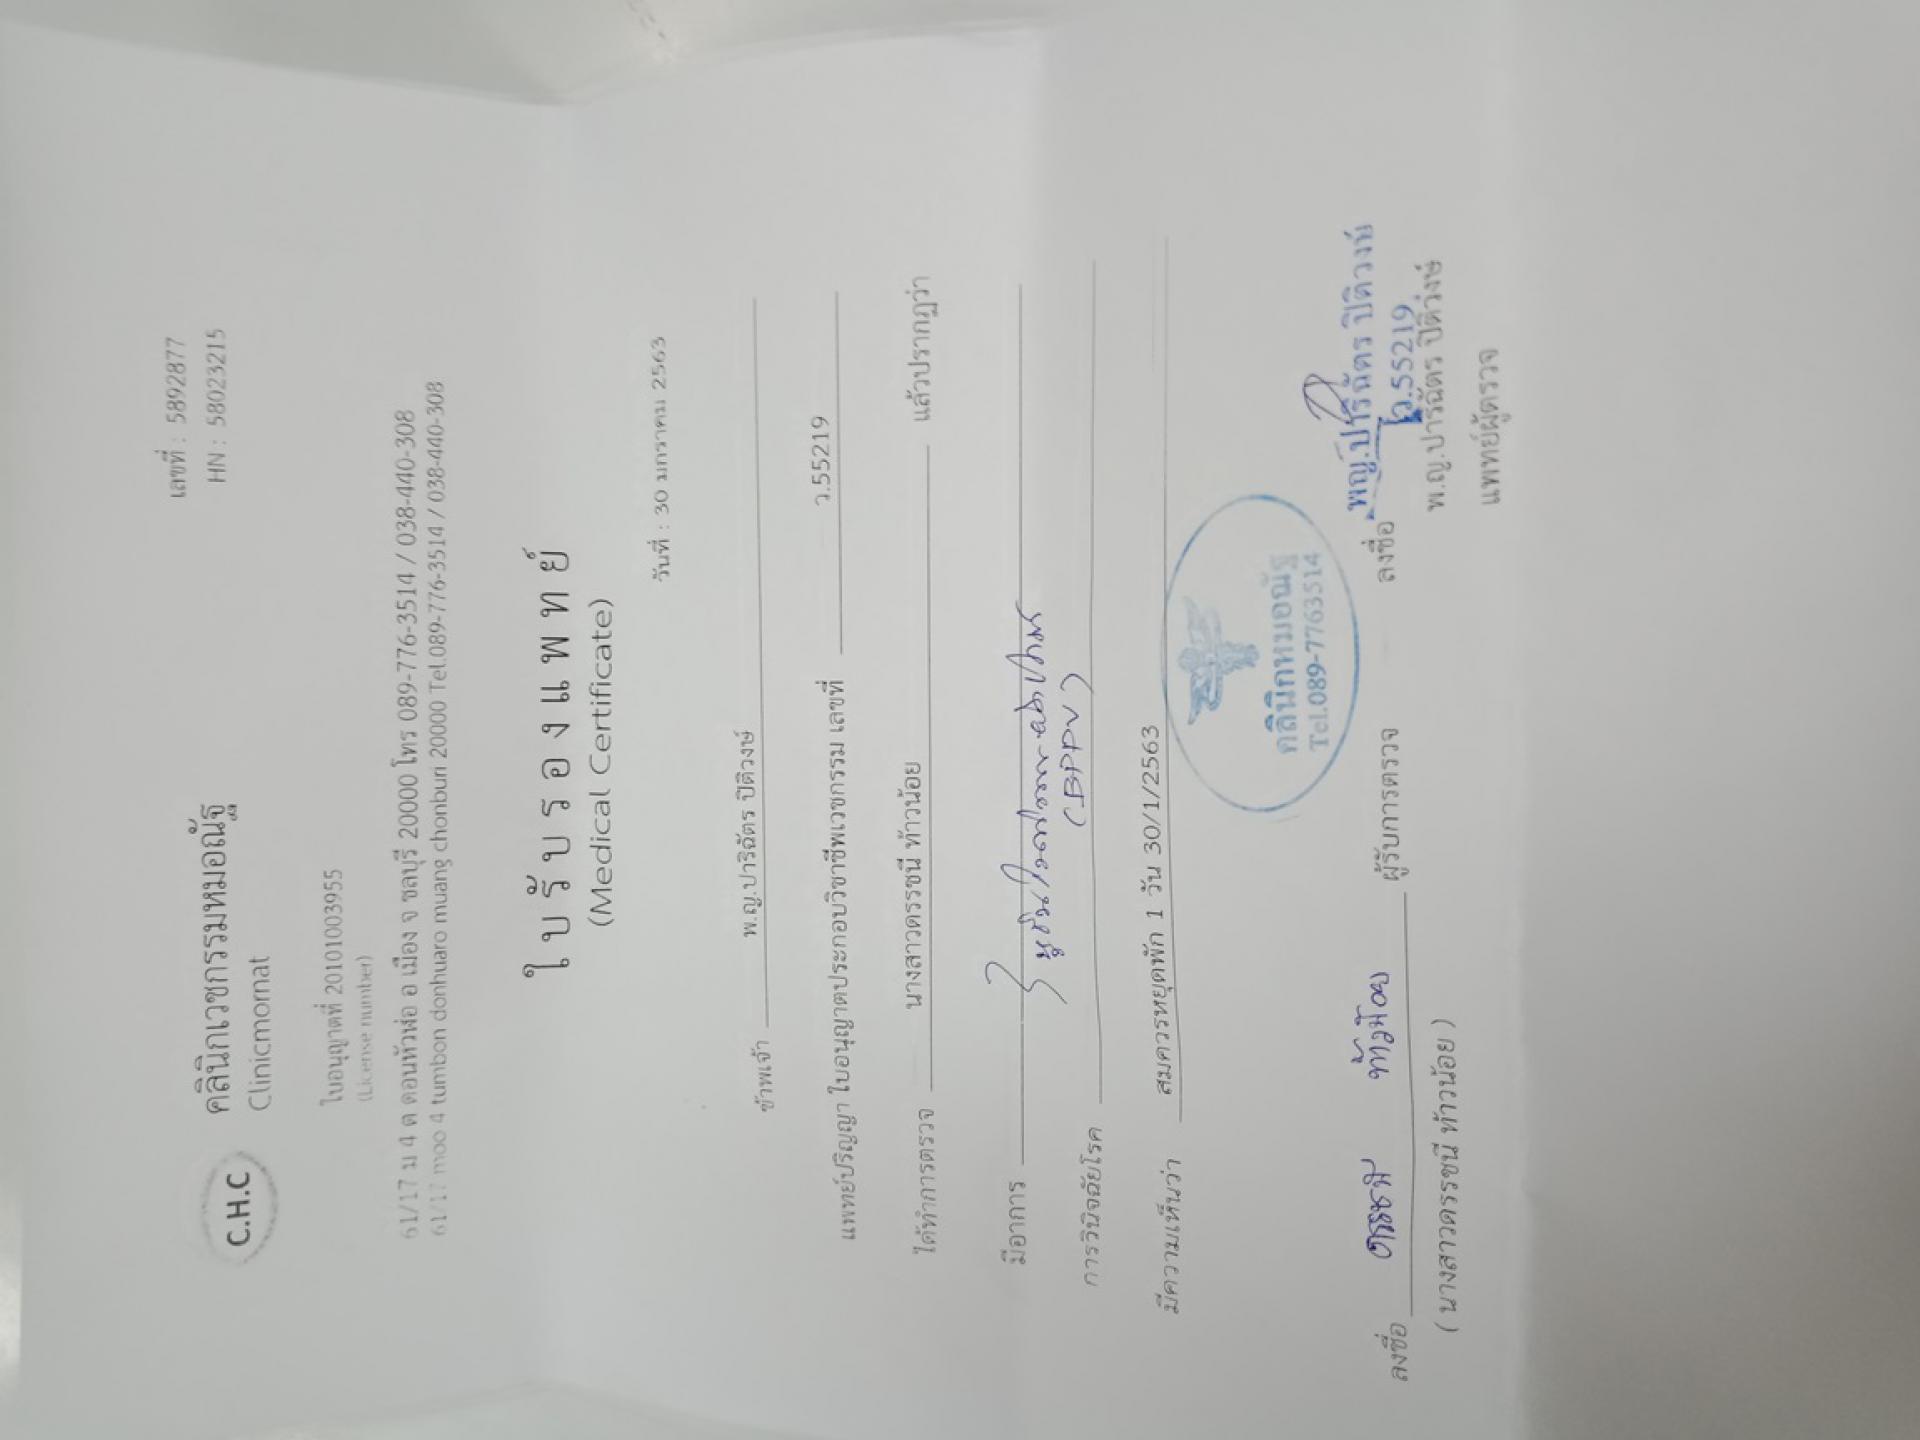 เลขที่ : 5892877
HN : 58023215
C.H.C
คลินิกเวชกรรมหมอณัฐ
Clinicmornat
ใบอนุญาตที่ 20101003955
(License number)
61/17 ม 4 ต ดอนหัวฬ่อ อ เมือง จ ชลบุรี 20000 โทร 089-776-3514 / 038-440-308
61/17 moo 4 tumbon donhuaro muang chonburi 20000 Tel.089-776-3514 / 038-440-308
ใบรับรองแพทย์
(Medical Certificate)
วันที่ : 30 มกราคม 2563
ข้าพเจ้า พ.ญ.ปาริฉัตร ปิติวงษ์
แพทย์ปริญญา ใบอนุญาตประกอบวิชาชีพเวชกรรม เลขที่ ว.55219
ได้ทำการตรวจ นางสาวดรรชนี ท้าวน้อย แล้วปรากฏว่า
มีอาการ
(BPPV)
การวินิจฉัยโรค
มีความเห็นว่า สมควรหยุดพัก 1 วัน 30/1/2563
คลินิกหมอณัฐ
Tel.089-7763514
ลงชื่อ ดรรชนี ท้าวน้อย ผู้รับการตรวจ
( นางสาวดรรชนี ท้าวน้อย )
ลงชื่อ พญ.ปาริฉัตร ปิติวงษ์
ว.55219
พ.ญ.ปาริฉัตร ปิติวงษ์
แพทย์ผู้ตรวจ